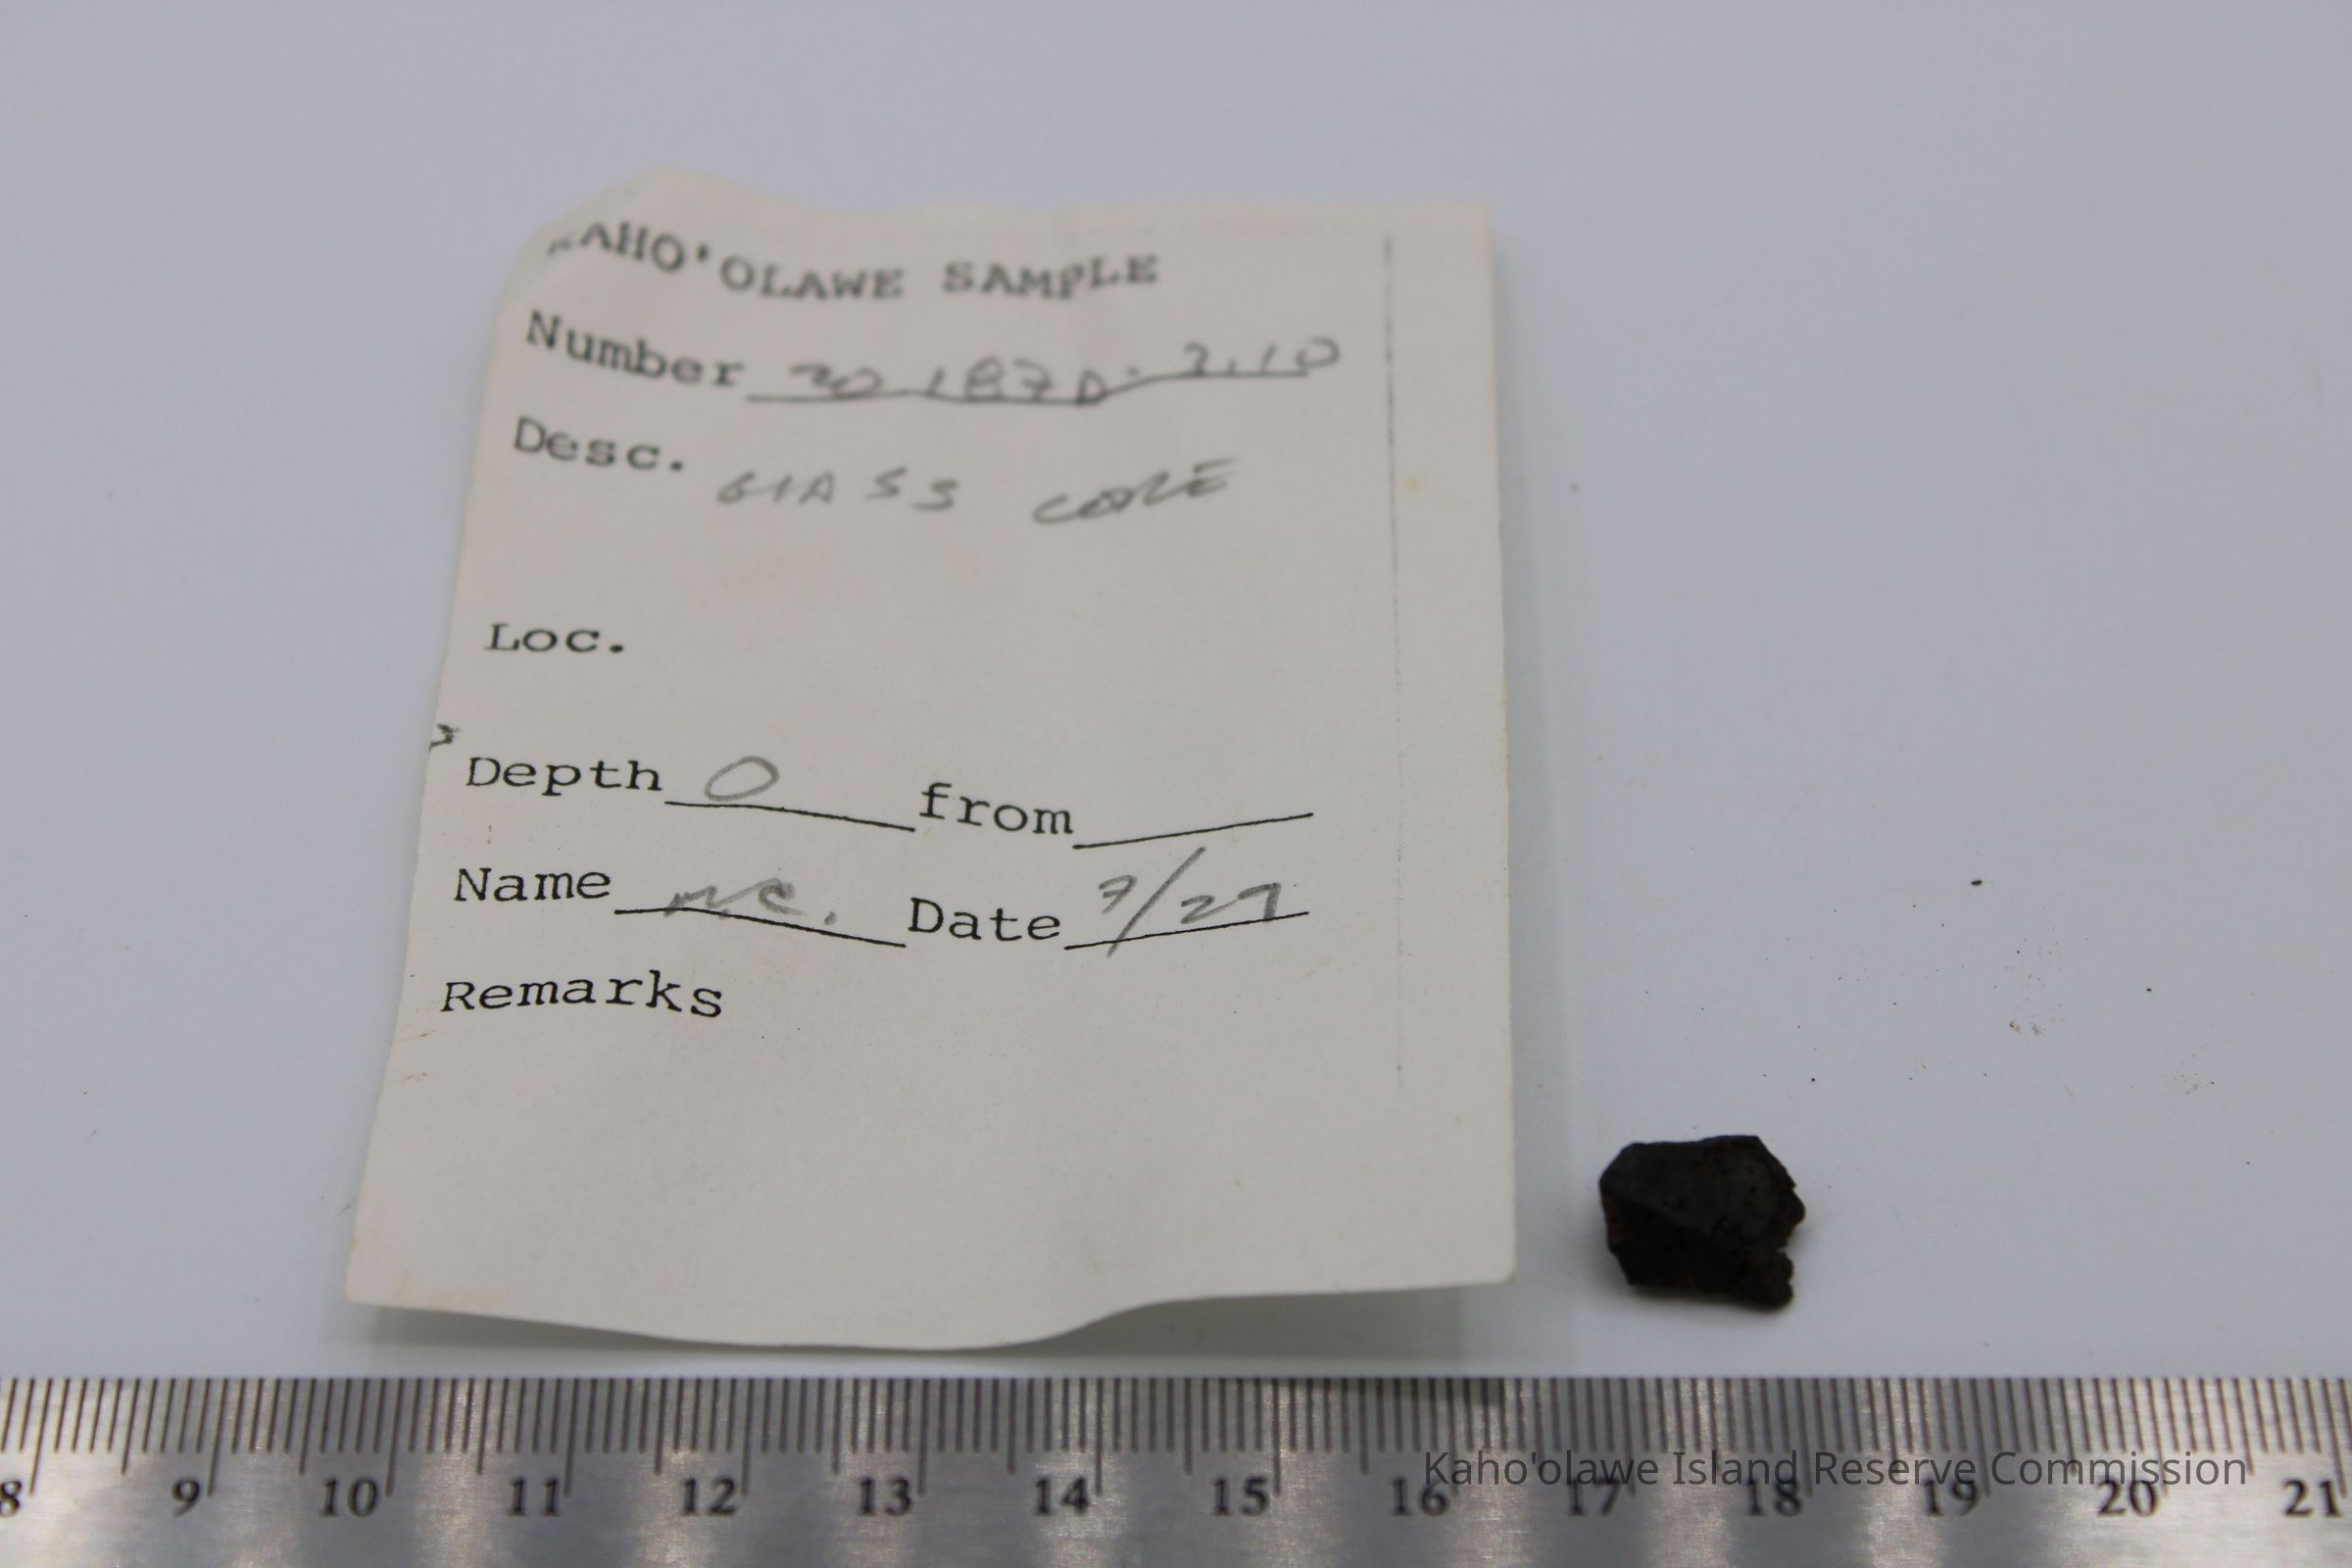 KAHO'OLAWE SAMPLE
Number 20 187D. 2.10
Desc. GLASS CORE
Loc.
Depth 0 from
Name M.C. Date 7/27
Remarks
8 9 10 11 12 13 14 15 16 17 18 19 20 21
Kaho'olawe Island Reserve Commission